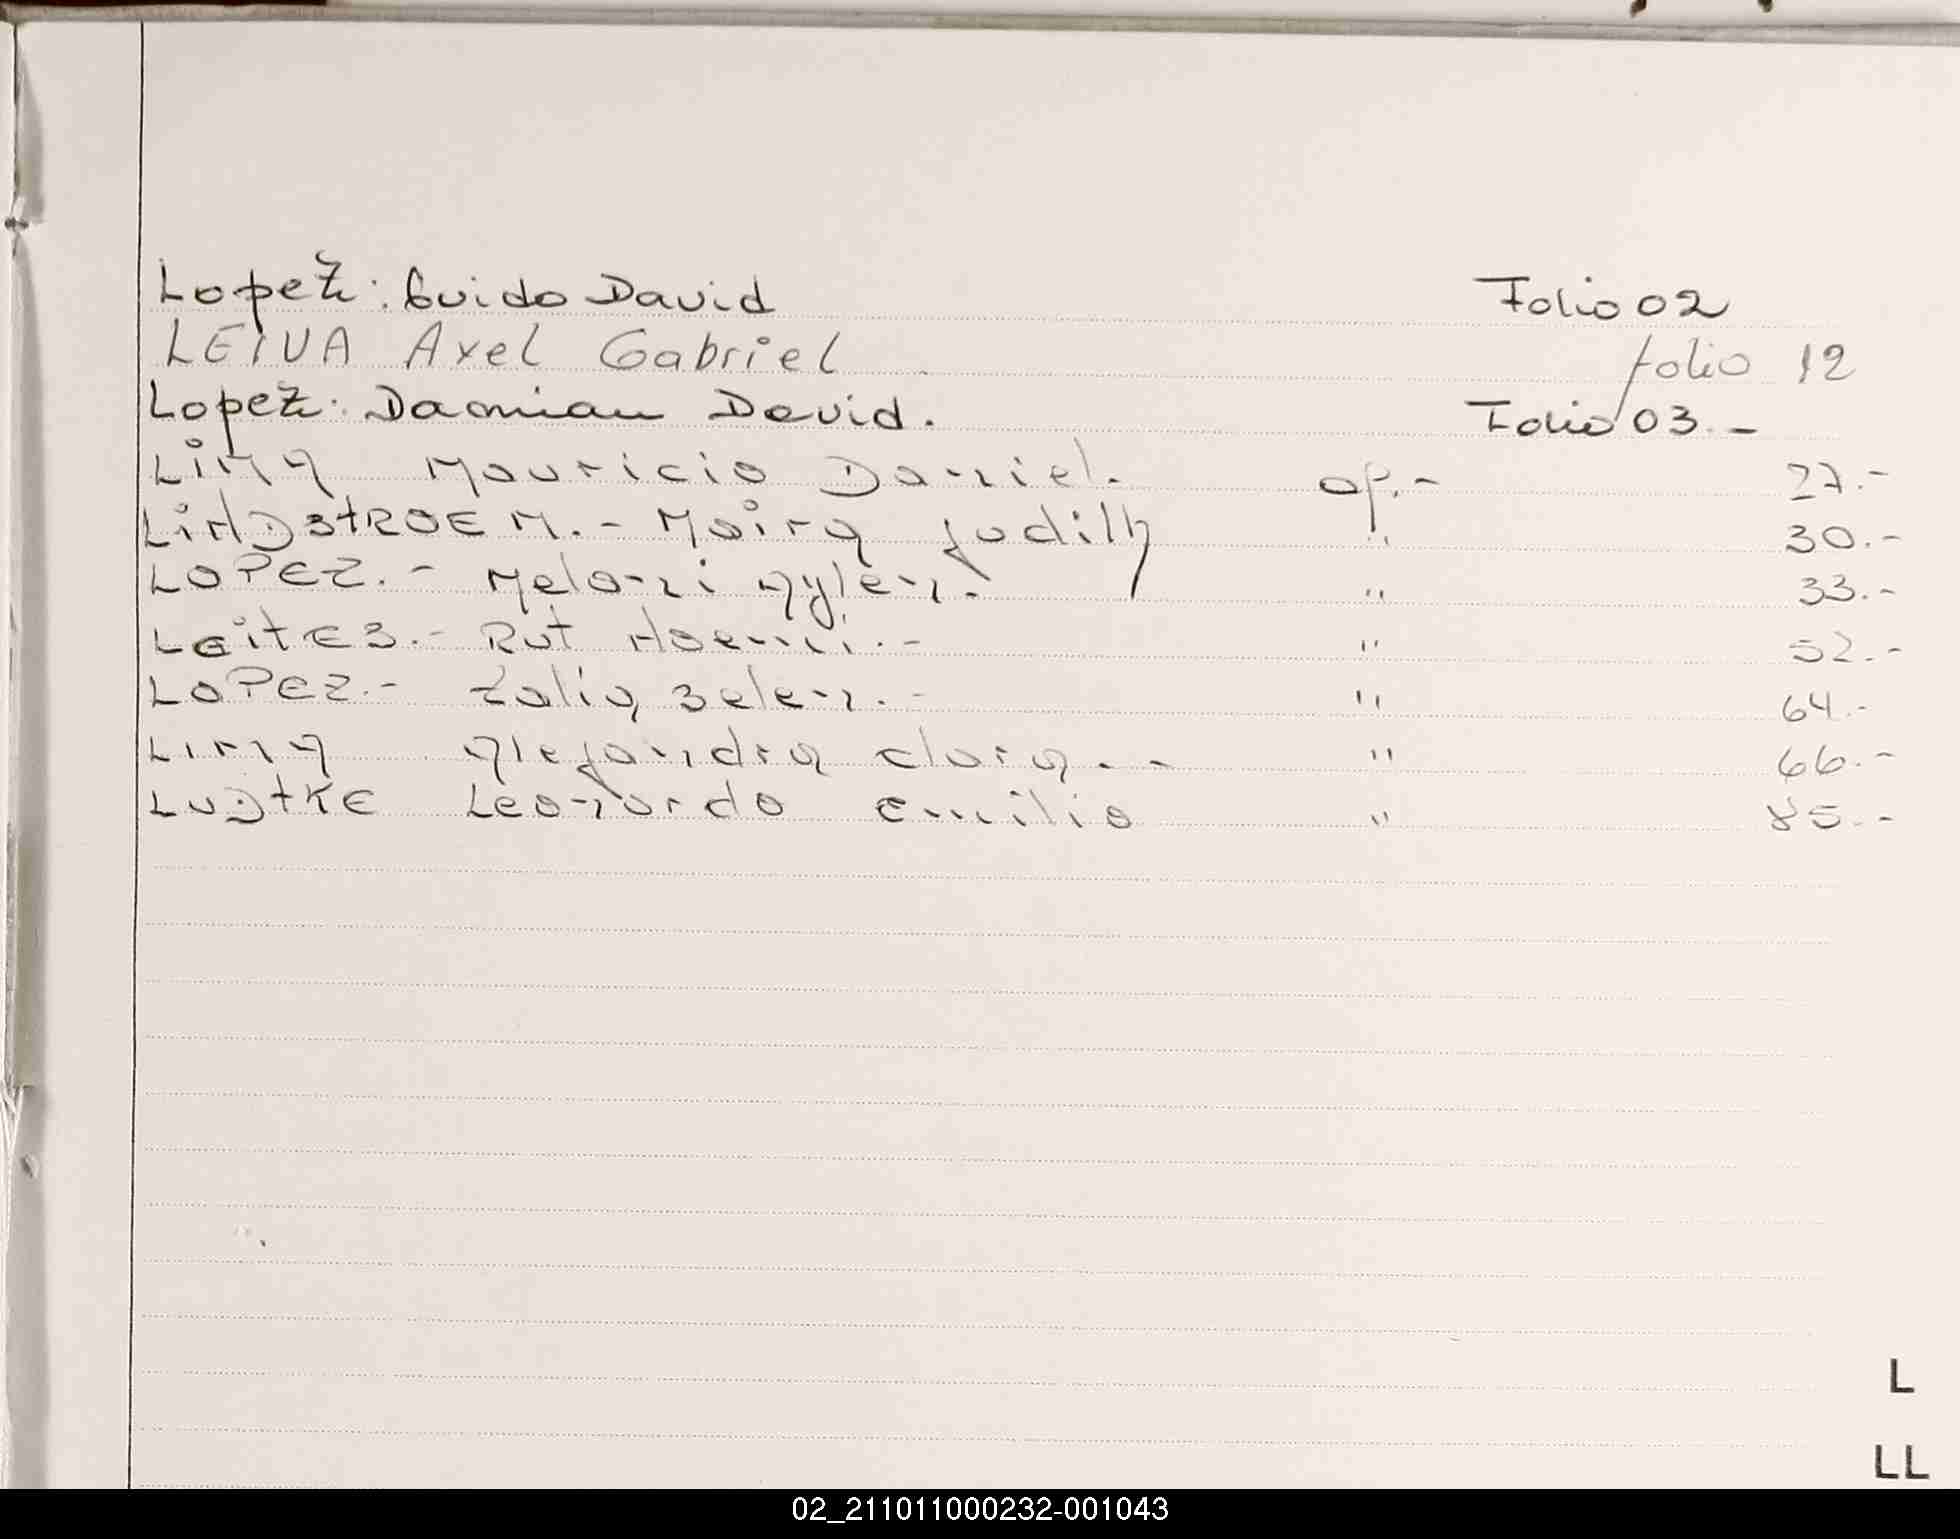 Lopez: Guido David Folio 02
LEIVA Axel Gabriel folio 12
Lopez: Damian David. Folio 03.-
LiMA Mauricio Daniel. of.- 27.-
LiNDStROEM.- Moira Judith " 30.-
LOPEZ.- Melani Aylen. " 33.-
LeitES.- Rut Noemi.- " 52.-
LOPEZ.- Zalia Selen.- " 64.-
LiMA Alejandra Clara.- " 66.-
LUDtKE Leonardo Emilio " 85.-
L
LL
02_211011000232-001043